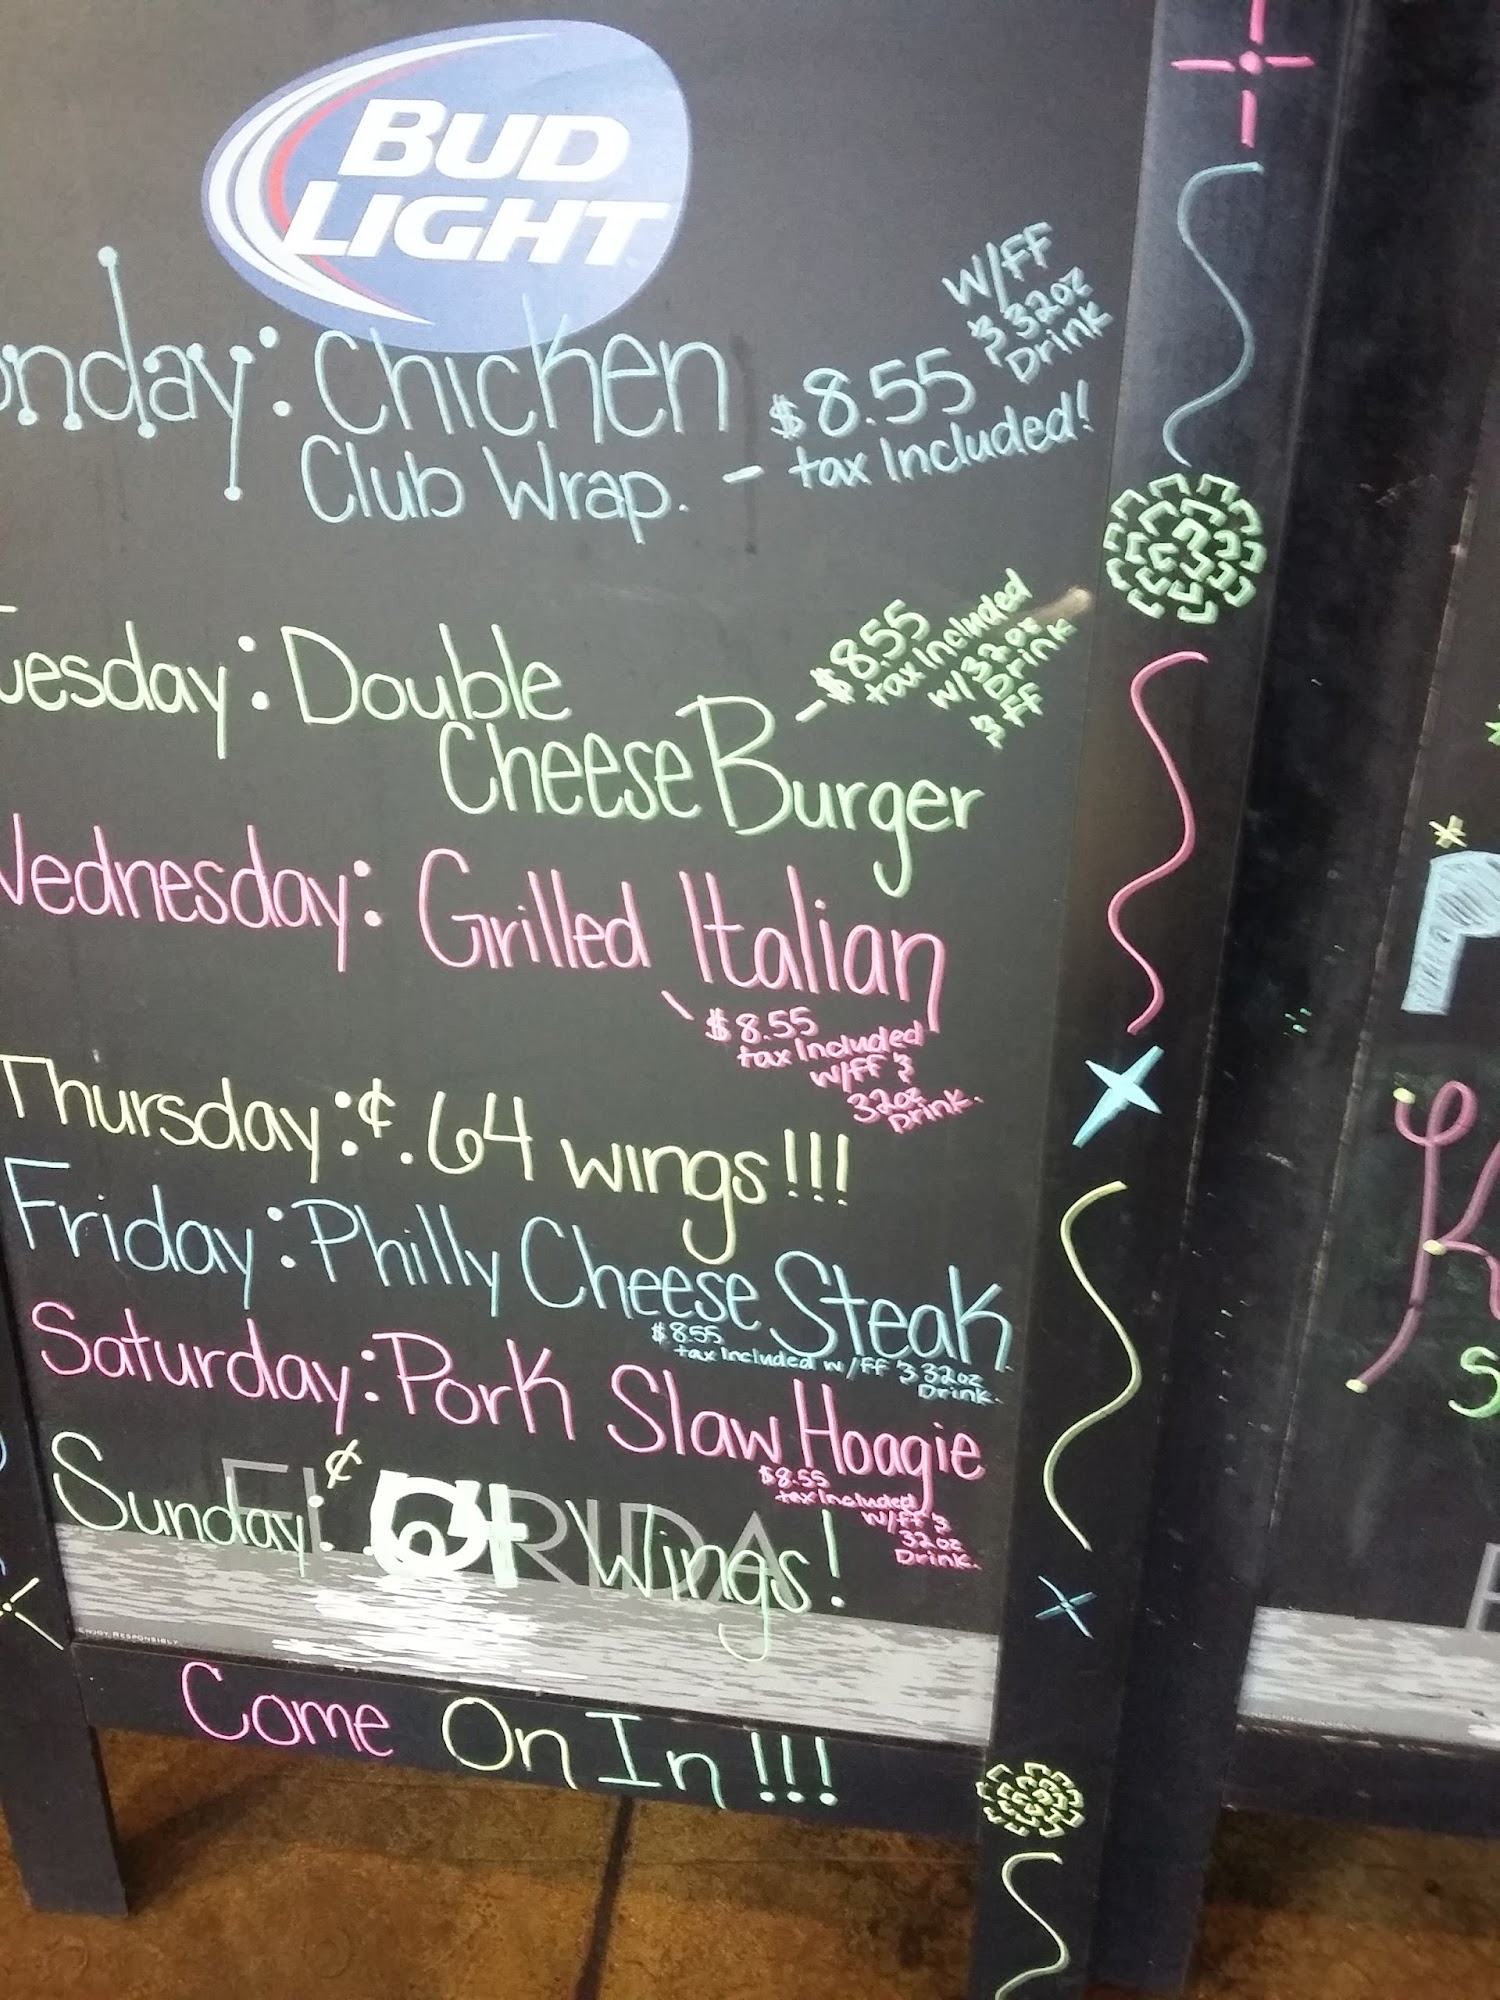 BUD
LIGHT
onday: Chicken
Club Wrap. - $8.55
tax Included!
W/FF
& 32oz
Drink
Tuesday: Double
Cheese Burger
- $8.55
tax Included
w/32oz
Drink
& FF
Wednesday: Grilled Italian
\ $8.55
tax Included
W/FF &
32oz
Drink.
Thursday: ¢.64 wings!!!
Friday: Philly Cheese Steak
$8.55
tax Included w/FF & 32oz
Drink.
Saturday: Pork Slaw Hoagie
$8.55
tax Included
W/FF &
32oz
Drink.
Sunday: ¢ .64 Wings!
FLORIDA
ENJOY RESPONSIBLY
Come On In!!!
P
K
S